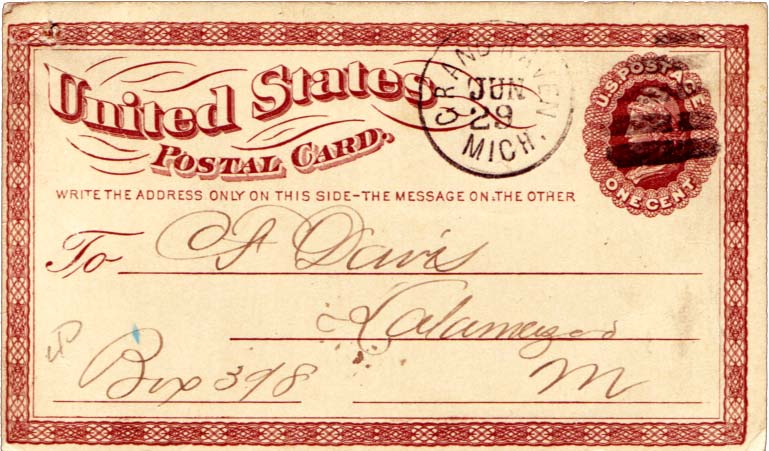 United States
POSTAL CARD.
GRAND HAVEN
JUN
29
MICH.
U.S. POSTAGE
ONE CENT
WRITE THE ADDRESS ONLY ON THIS SIDE-THE MESSAGE ON THE OTHER
To Davis
Kalamazoo
Box 398 M